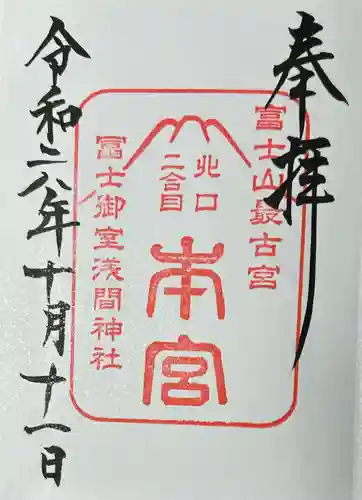 奉拝
冨士山最古宮
北口
二合目
本宮
冨士御室浅間神社
令和六年十月十一日